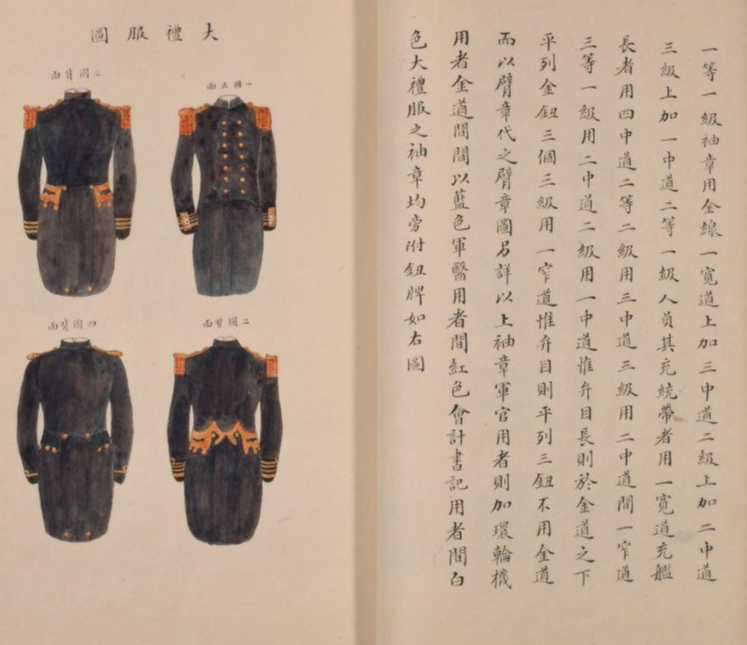 一等一級袖章用金線一寬道上加三中道二級上加二中道
三級上加一中道二等一級人員其充統帶者用一寬道充艦
長者用四中道二等二級用三中道三級用二中道間一窄道
三等一級用二中道二級用一中道惟弁目長則於金道之下
平列金鈕三個三級用一窄道惟弁目則平列三鈕不用金道
而以臂章代之臂章圖另詳以上袖章軍官用者則加環輪機
用者金道間間以藍色軍醫用者間紅色會計書記用者間白
色大禮服之袖章均旁附鈕牌如右圖
大禮服圖
一圖正面
二圖背面
三圖背面
四圖背面